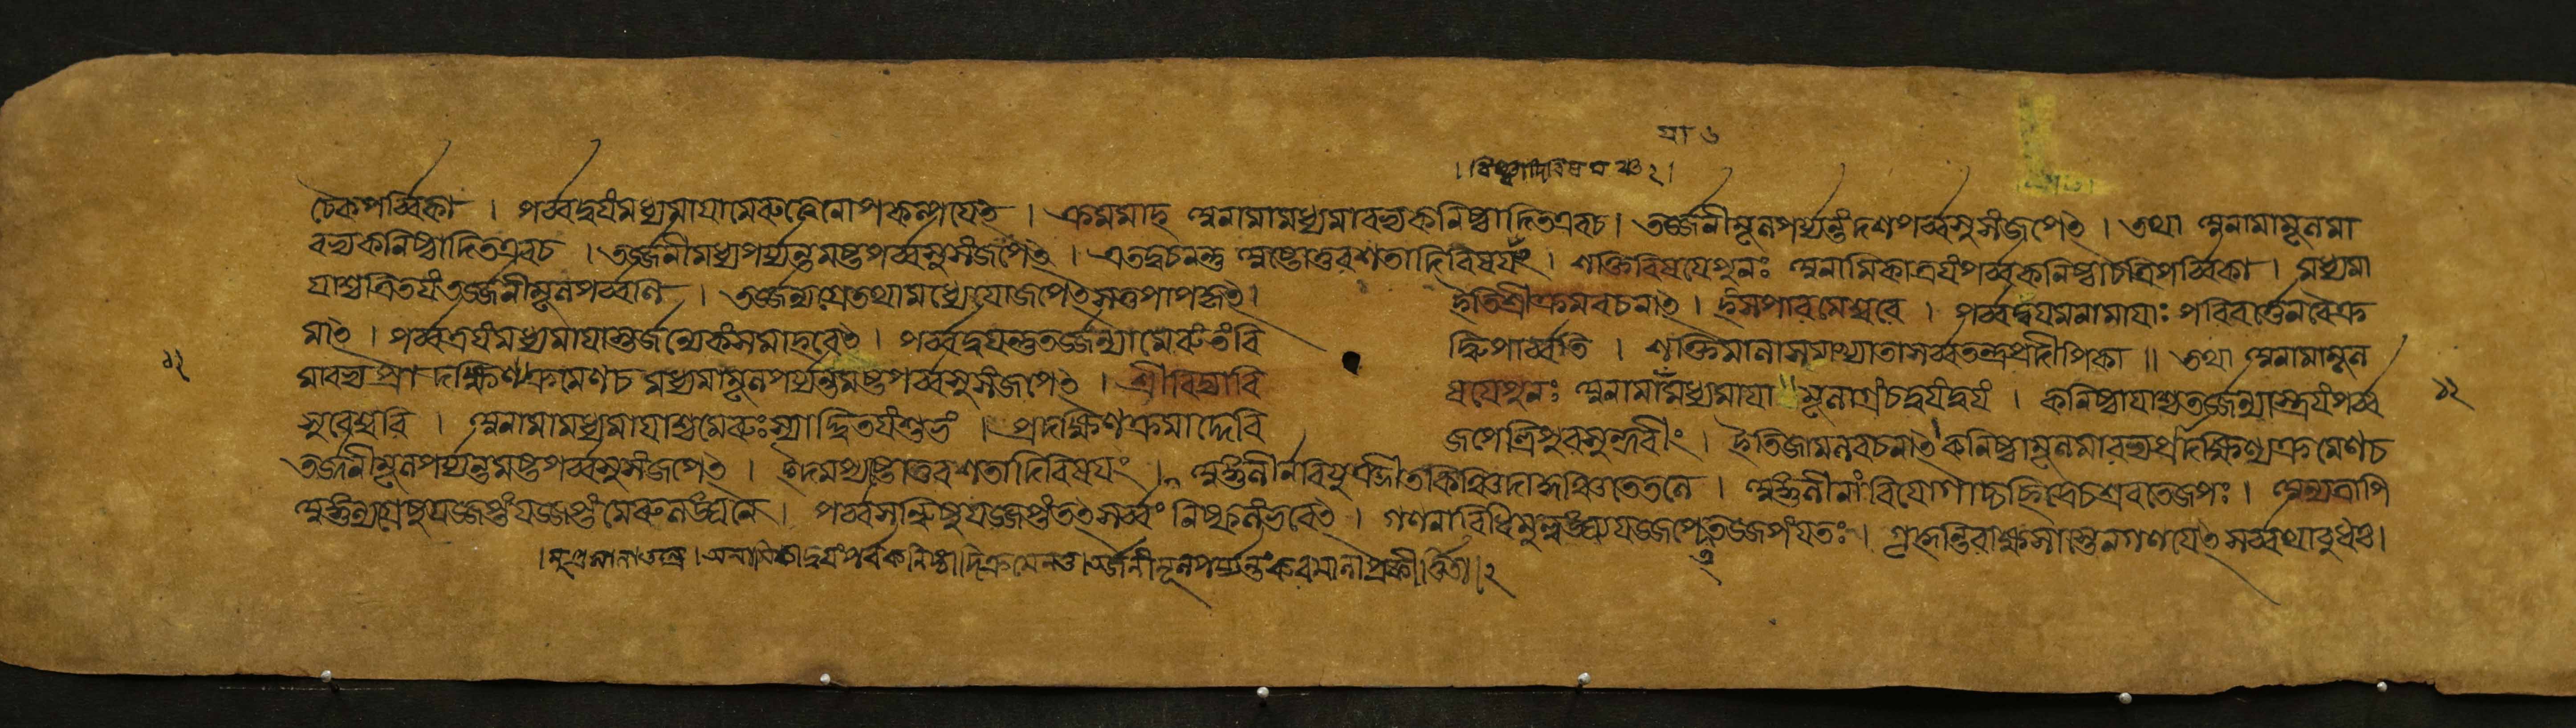 চৈকপর্ব্বিকা । পর্ব্বদ্বয়ং মধ্যমায়া মেরুত্বেনোপকল্পয়েৎ । ক্রমমাহ অনামামধ্যমারভ্য কনিষ্ঠাদিত এব চ । তর্জ্জনীমূলপর্য্যন্তং দশপর্ব্বসু সংজপেৎ । তথা অনামামূলমা
রভ্য কনিষ্ঠাদিত এব চ । তর্জ্জনীমধ্যপর্য্যন্তমষ্টপর্ব্বসু সংজপেৎ । এতদ্বচনন্তু অষ্টোত্তরশতাদিবিষয়ং । শক্তিবিষয়ে পুনঃ অনামিকাত্রয়ং পর্ব্ব কনিষ্ঠা চ ত্রিপর্ব্বিকা । মধ্যমা
য়াশ্চ ত্রিতয়ং তর্জ্জনীমূলপর্ব্বনি । তর্জ্জন্যগ্রে তথা মধ্যে যো জপেৎ স তু পাপকৃৎ । ইতি শ্রীক্রমবচনাৎ । হংসপারমেশ্বরে । পর্ব্বদ্বয়মনামায়াঃ পরিবর্ত্তেন বৈ ক্র
মাৎ । পর্ব্বত্রয়ং মধ্যমায়াস্তর্জন্যেকং সমাহরেৎ । পর্ব্বদ্বয়ন্তু তর্জ্জন্যা মেরুং তং বিদ্ধি পার্ব্বতি । শক্তিমালা সমাখ্যাতা সর্ব্বতন্ত্রপ্রদীপিকা ॥ তথা অনামামূল
মারভ্য প্রাদক্ষিণ্যক্রমেণ চ মধ্যমামূলপর্য্যন্তমষ্টপর্ব্বসু সংজপেৎ । শ্রীবিদ্যাবিষয়ে পুনঃ অনামামধ্যমায়া মূলাগ্রং চ দ্বয়ং দ্বয়ং । কনিষ্ঠায়াশ্চ তর্জ্জন্যাস্ত্রয়ং পর্ব্ব
সুরেশ্বরি । অনামামধ্যমায়াশ্চ মেরুঃ স্যাদ্দ্বিতয়ং শুভং । প্রদক্ষিণক্রমাদ্দেবি জপেত্ত্রিপুরসুন্দরীং । ইতি জামলবচনাৎ কনিষ্ঠামূলমারভ্য প্রাদক্ষিণ্যক্রমেণ চ
তর্জনীমূলপর্য্যন্তমষ্টপর্ব্বসু সংজপেৎ । ইদমপ্যষ্টোত্তরশতাদিবিষয়ং । অঙ্গুলীর্ন বিযুঞ্জীত কিঞ্চিদাকুঞ্চিতে তলে । অঙ্গুলীনাং বিয়োগাচ্চ ছিদ্রে চ শ্রবতে জপঃ । অন্যত্রাপি
অঙ্গুল্যগ্রেষু যজ্জপ্তং যজ্জপ্তং মেরুলঙ্ঘনে । পর্ব্বসন্ধিষু যজ্জপ্তং তৎ সর্ব্বং নিষ্ফলং ভবেৎ । গণনাবিধিমুল্লঙ্ঘ্য যজ্জপেত্তজ্জপং যতঃ । গৃহ্নন্তি রাক্ষসাস্তেন গণয়েৎ সর্ব্বথা বুধঃ ।
১২
১২